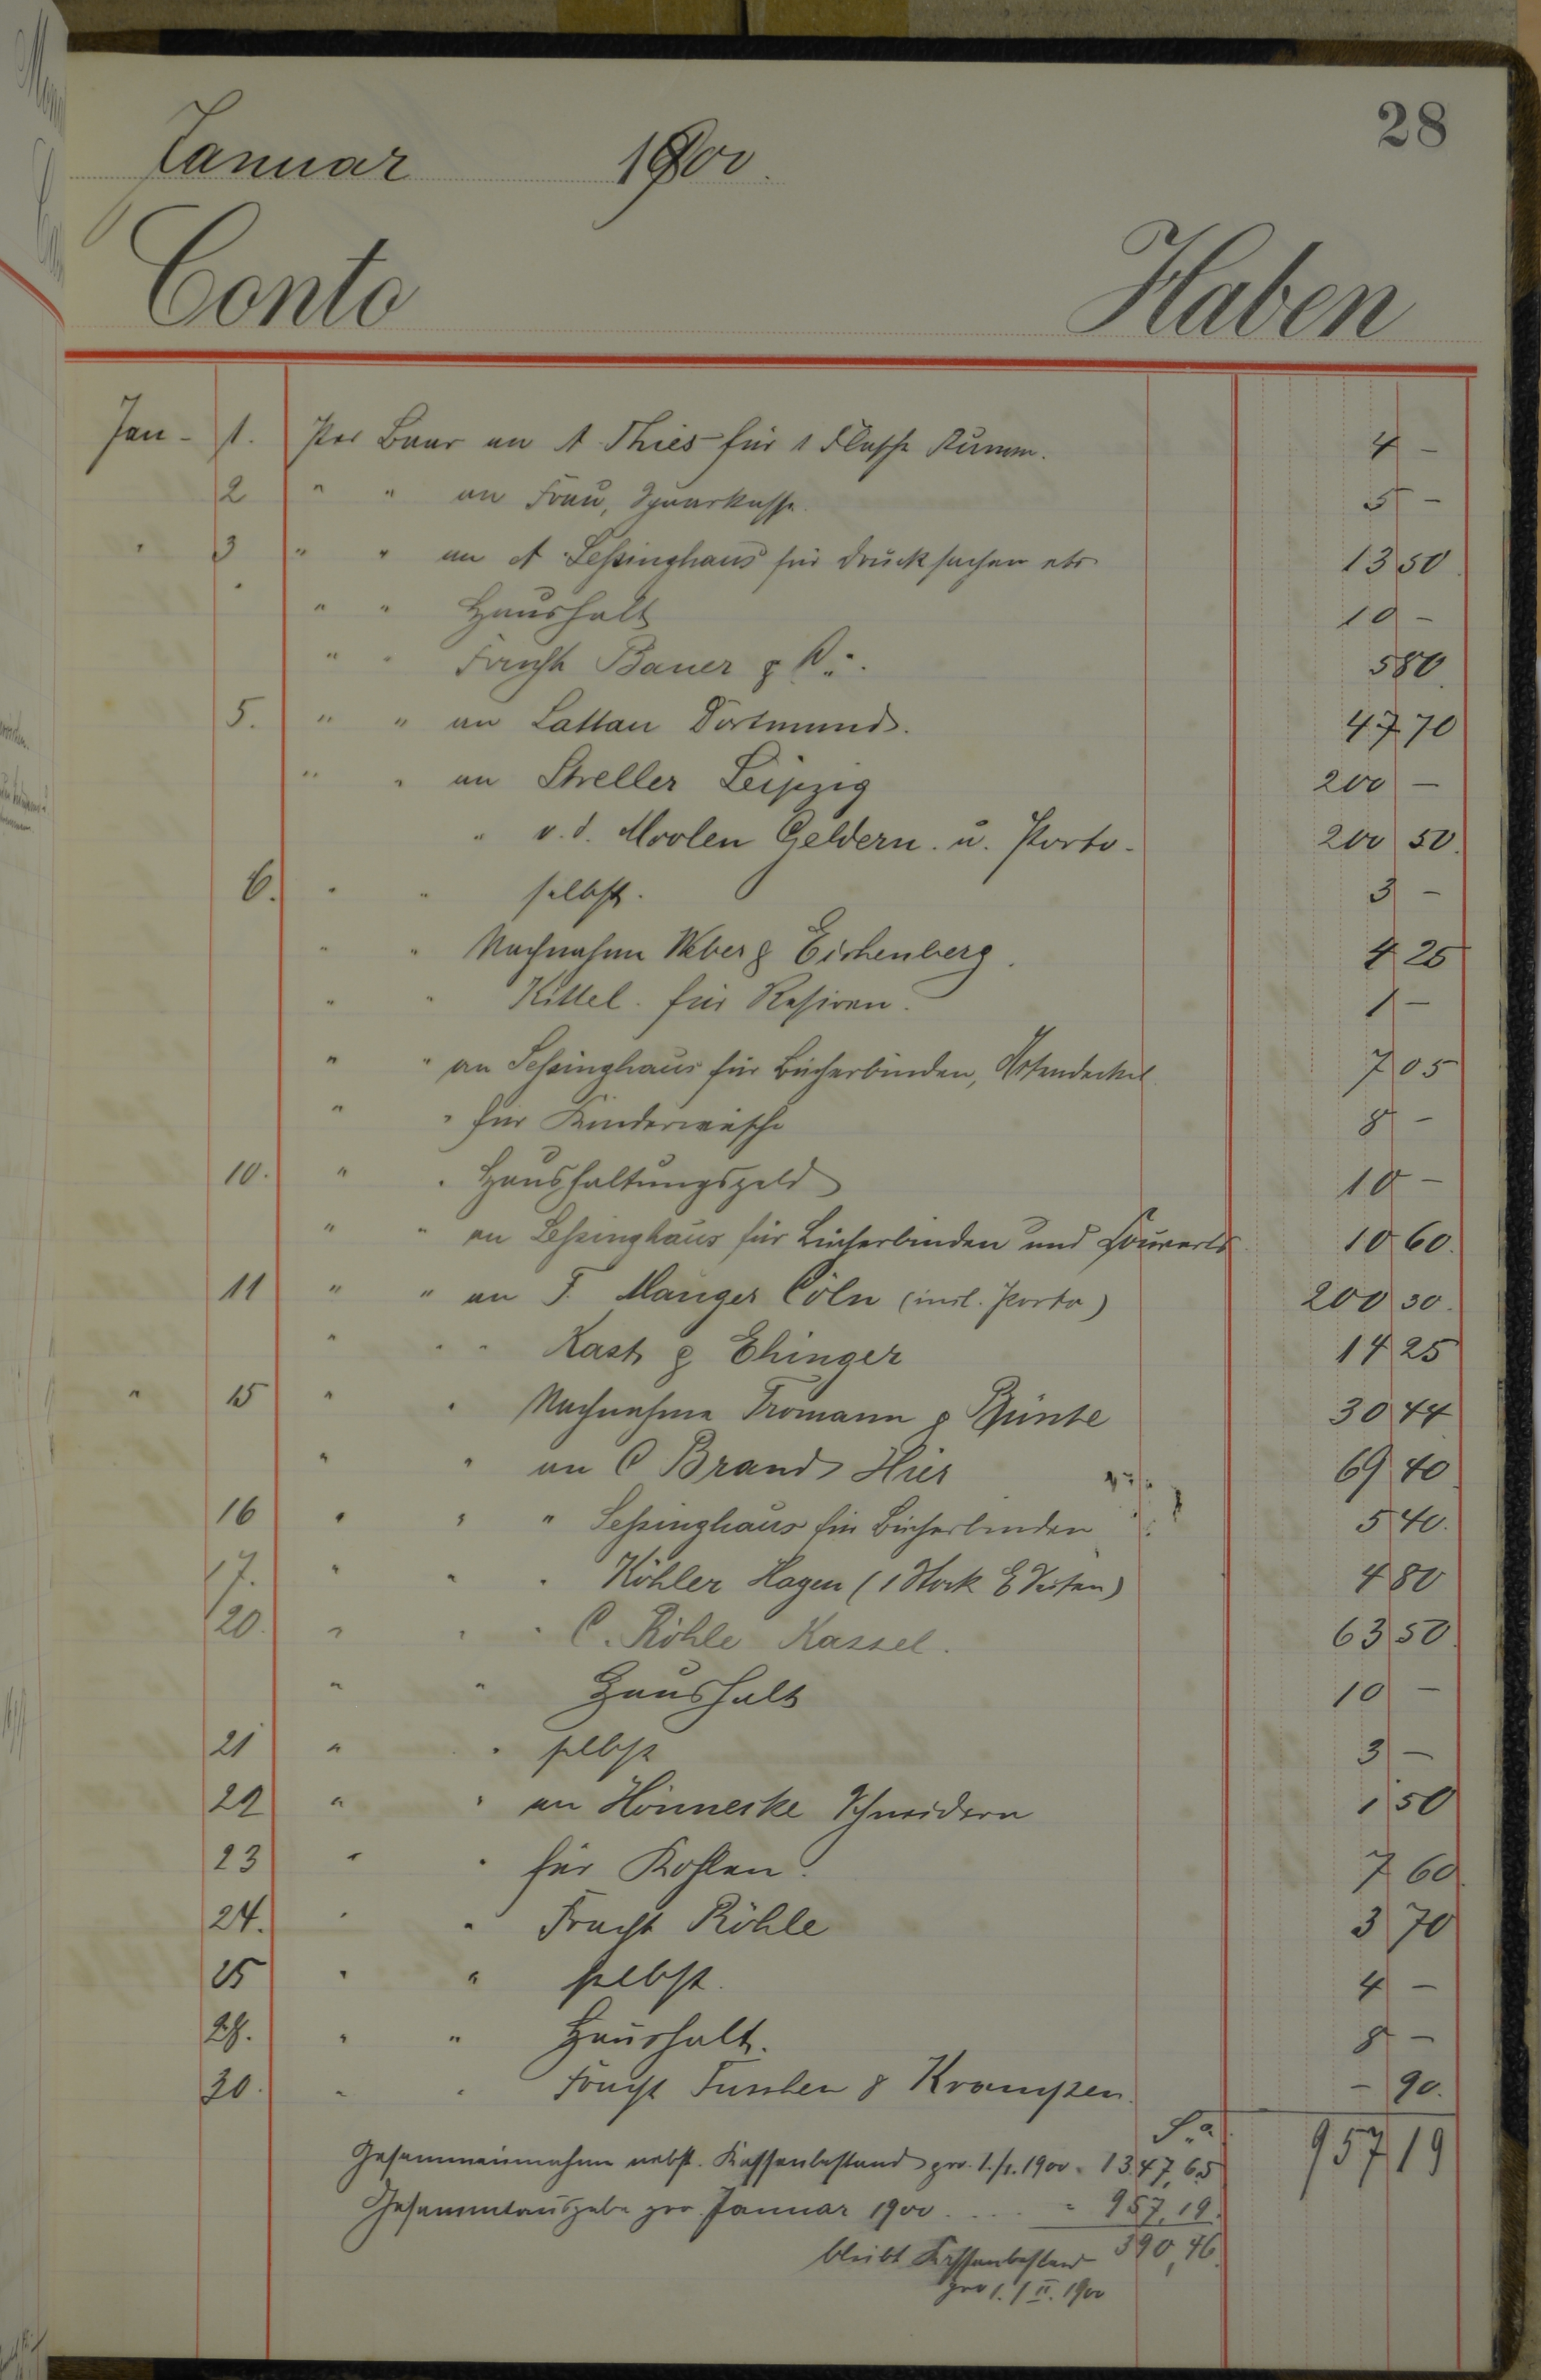 28
Januar 1900.
Conto Haben
Jan - 1. Per Baar an A Thies für 1 Flasche Rumm. 4 -
2 " " an Frau, Sparkasse. 5 -
" 3 " " an A Leßinghaus für Drucksachen etc 13 50
" " Haushalt 10 -
" " Fracht Bauer & 5 80
5. " " an Lattau Dortmund. 47 70
" " an Streller Leipzig 200 -
" v. d. Moolen Geldern. u. Porto. 200 50.
6. " " selbst. 3 -
" " Nachnahme Weber & Eichenberg. 4 25
" " Kittel. für Rasiren. 1 -
" " an Leßinghaus für Bücherbinden, 7 05
" " für Kinderwäsche 8 -
10. " " Haushaltungsgeld 10 -
" " an Leßinghaus für Bücherbinden und Couverts 10 60.
11 " " an F. Mauger Cöln (incl. Porto) 200 30.
" " " Kast & Ehinger 14 25
" 15 " " Nachnahme Tromann & Bünte 30 44
" " an C Brand Hier 69 40
16 " " " Leßinghaus für Bücherbinden 5 40.
17. " " " Köhler Hagen (1 Stock 4 80
20. " " " C. Röhle Kassel. 63 50
" " Haushalt 10 -
21 " " selbst 3 -
22 " " an Hönnecke Schneidern 1 50
23 " " für Kohlen. 7 60
24. " " Fracht Röhle 3 70
25 " " selbst. 4 -
28. " " Haushalt. 8 -
30. " " Fracht & Krampen. - 90.
Sa. 957 19
Gesammeinnahme nebst. Kassenbestand pro. 1./1. 1900 = 1347,65
Gesammtausgabe pro Januar 1900 .... = 957,19.
bleibt Kassenbestand 390,46
pro 1./II. 1900